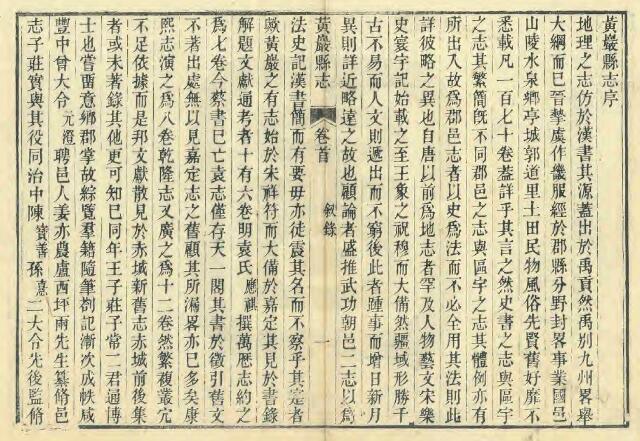 黃巖縣志序
地理之志仿於漢書其源蓋出於禹貢然禹別九州畧舉
大綱而已晉摯虞作畿服經於郡縣分野封畧事業國邑
山陵水泉鄉亭城郭道里土田民物風俗先賢舊好靡不
悉載凡一百七十卷蓋詳乎其言之然史書之志與區宇
之志其繁簡旣不同郡邑之志與區宇之志其體例亦有
所出入故爲郡邑志者以史爲法而不必全用其法則此
詳彼略之異也自唐以前爲地志者罕及人物藝文宋樂
史寰宇記始載之至王象之祝穆而大備然疆域形勝千
古不易而人文則遞出而不窮後此者踵事而增日新月
異則詳近略遠之故也顧論者盛推武功朝邑二志以爲
黃巖縣志
卷首
敘錄
一
法史記漢書簡而有要毋亦徒震其名而不察乎其實者
歟黃巖之有志始於宋祥符而大備於嘉定其見於書錄
解題文獻通考者十有六卷明袁氏應祺撰萬厯志約之
爲七卷今蔡書已亡袁志僅存天一閣其書於徵引舊文
不著出處無以見嘉定志之舊顧其所漏畧亦已多矣康
熙志演之爲八卷乾隆志又廣之爲十二卷然繁複叢宂
不足依據而是邦文獻散見於赤城新舊志赤城前後集
者或未著錄其他更可知已同年王子莊子常二君通博
士也嘗畱意鄉郡掌故綜覽羣籍隨筆劄記漸次成帙咸
豐中曾大令元澄聘邑人姜亦農盧西坪兩先生纂脩邑
志子莊實與其役同治中陳寶善孫憙二大令先後監脩